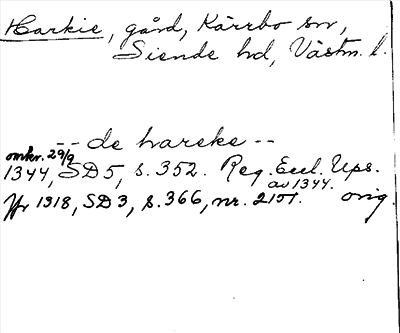 Harkie, gård, Kärrbo sn,
Siende hd, Västm. l.
-- de harske --
omkr. 29/9
1344, SD5, s. 352. Reg. Eccl. Ups.
av 1344.
Jfr 1318, SD3, s. 366, nr. 2151. orig.